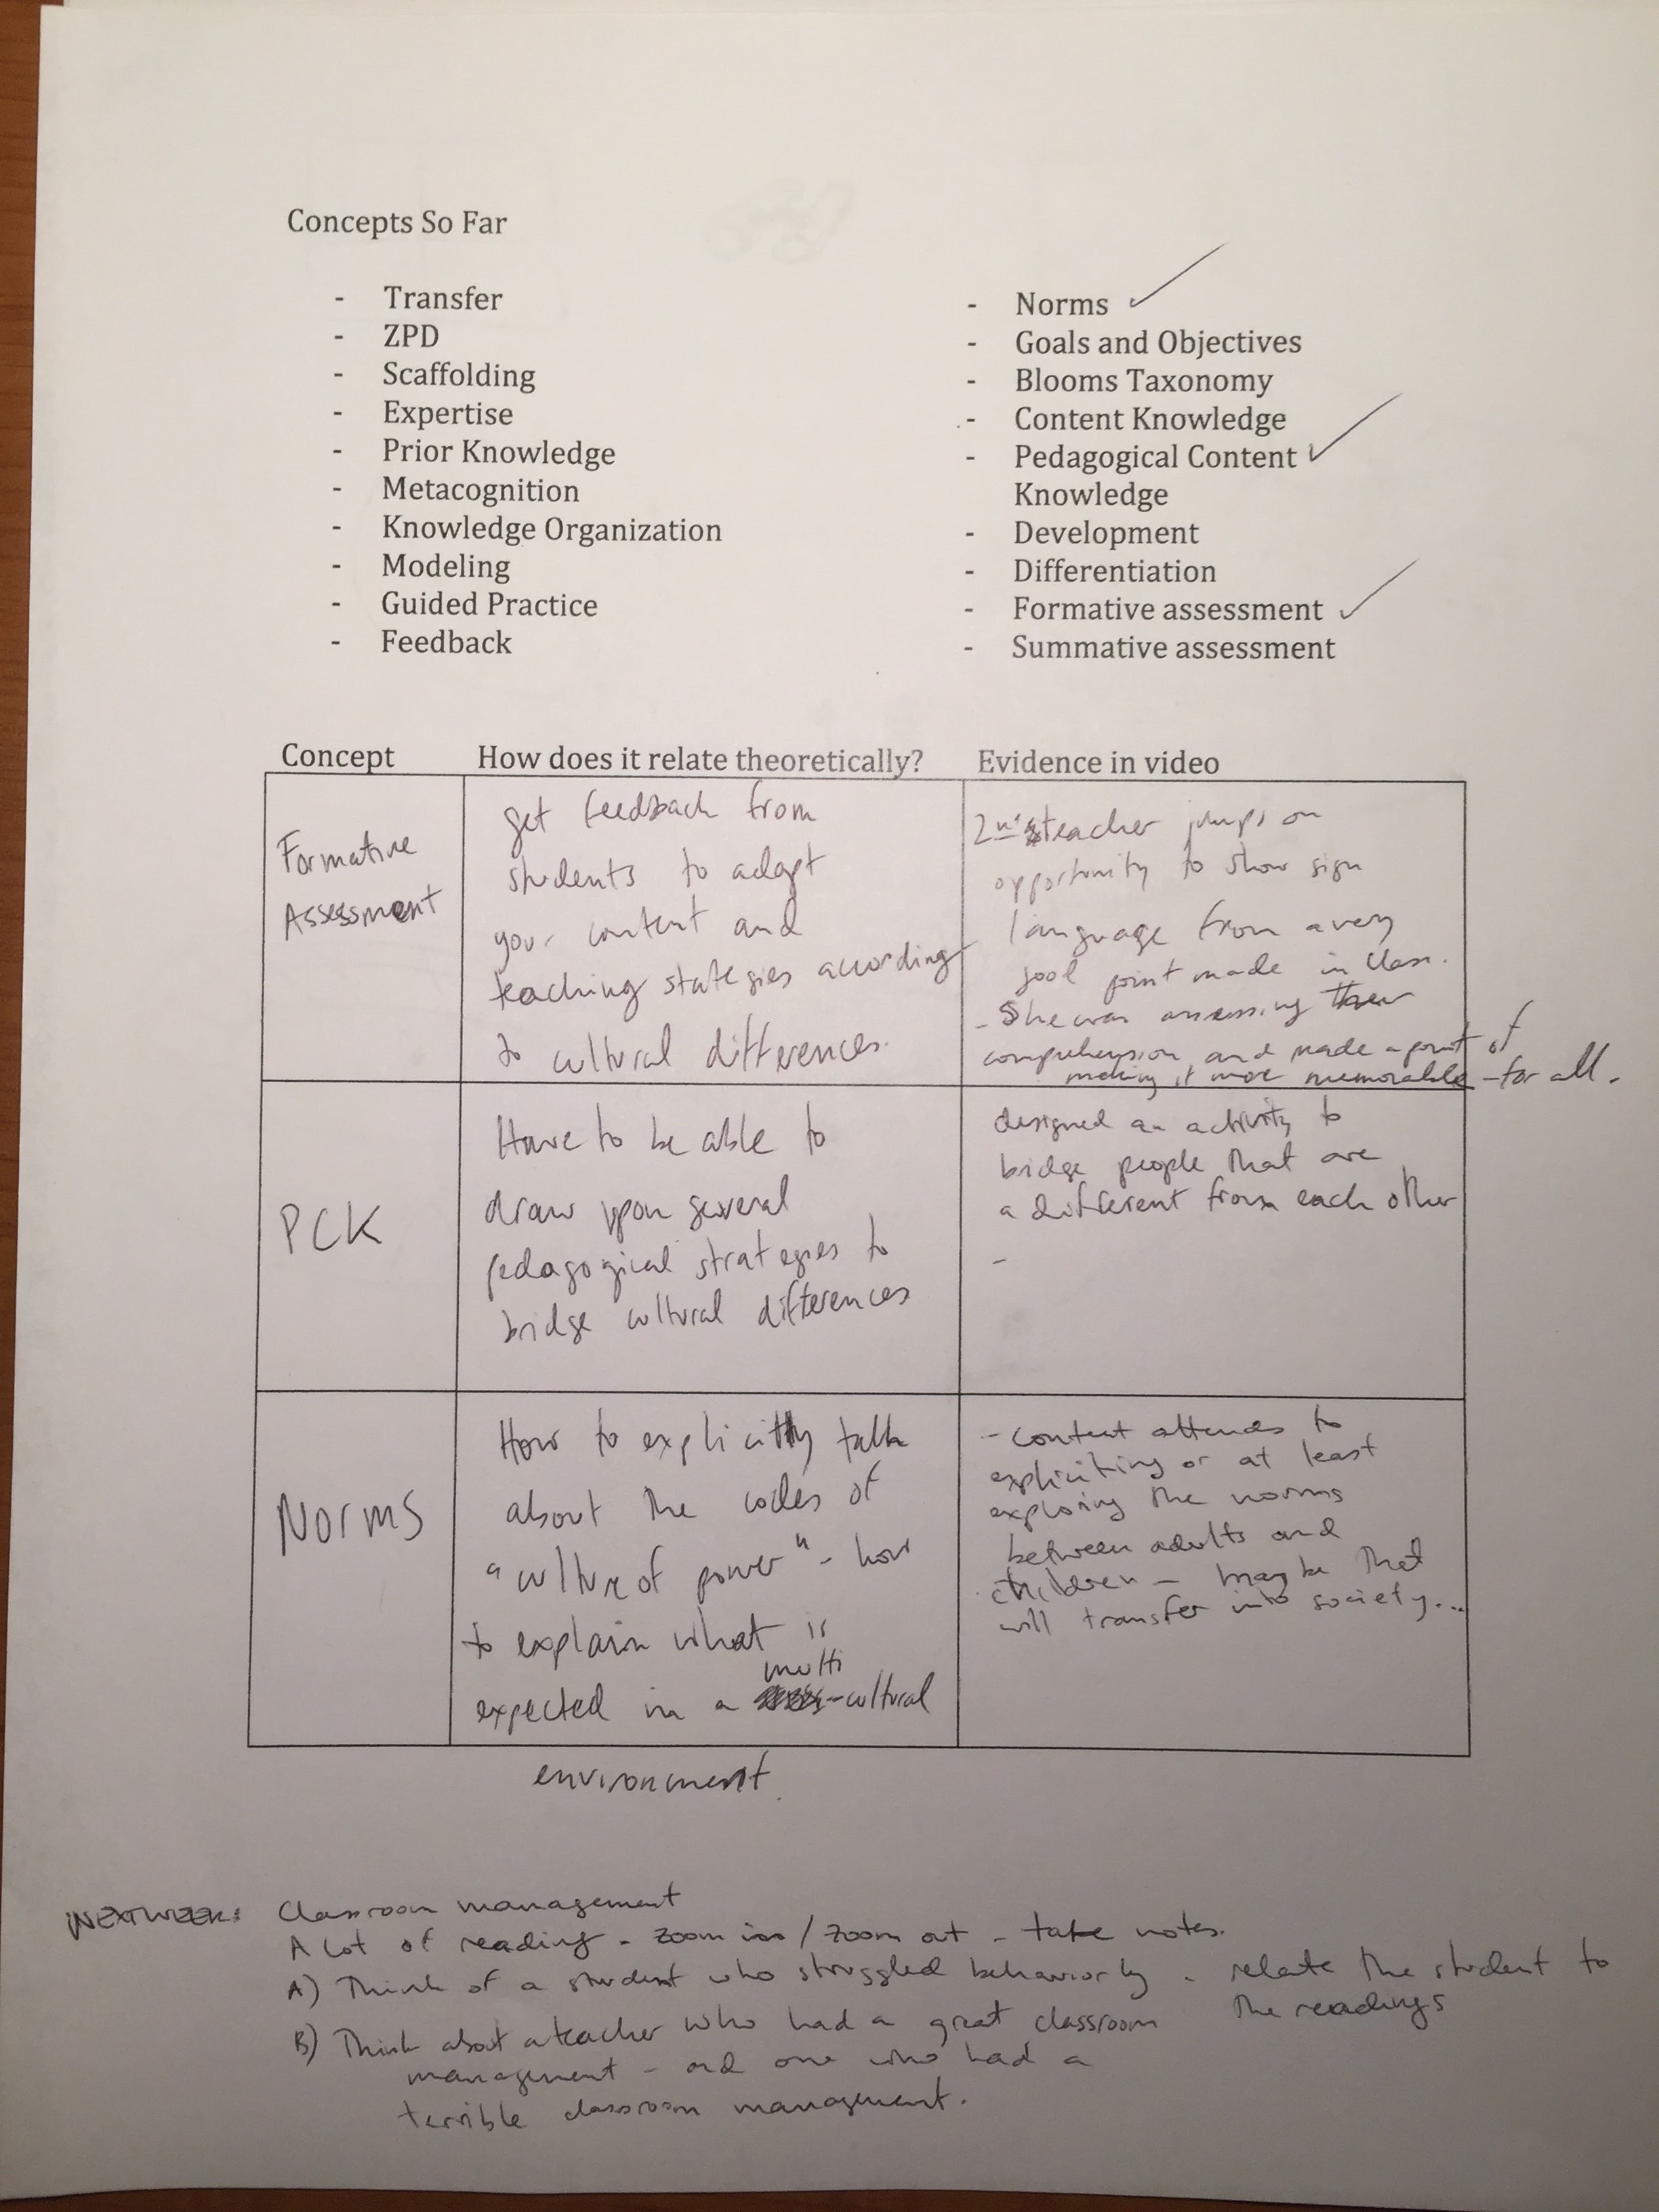 Concepts So Far
- Transfer
- ZPD
- Scaffolding
- Expertise
- Prior Knowledge
- Metacognition
- Knowledge Organization
- Modeling
- Guided Practice
- Feedback
- Norms
- Goals and Objectives
- Blooms Taxonomy
- Content Knowledge
- Pedagogical Content
Knowledge
- Development
- Differentiation
- Formative assessment
- Summative assessment
Concept
How does it relate theoretically?
Evidence in video
Formative
Assessment
get feedback from
students to adapt
your content and
teaching stategies according
to cultural differences.
2nd teacher jumps on
opportunity to show sign
language from a very
good point made in class.
- She was assessing their
comprehension and made a point of
making it more memorable - for all.
PCK
Have to be able to
draw upon several
pedagogical strategies to
bridge cultural differences
designed an activity to
bridge people that are
a different from each other
-
Norms
How to explicitly talk
about the codes of
"culture of power" - how
to explain what is
expected in a multi-cultural
environment.
- content attends to
expliciting or at least
exploring the norms
between adults and
children - maybe that
will transfer into society...
NEXT WEEK: Classroom management
A lot of reading - zoom in / zoom out - take notes.
A) Think of a student who struggled behaviorly - relate the student to
the readings
B) Think about a teacher who had a great classroom
management - and one who had a
terrible classroom management.